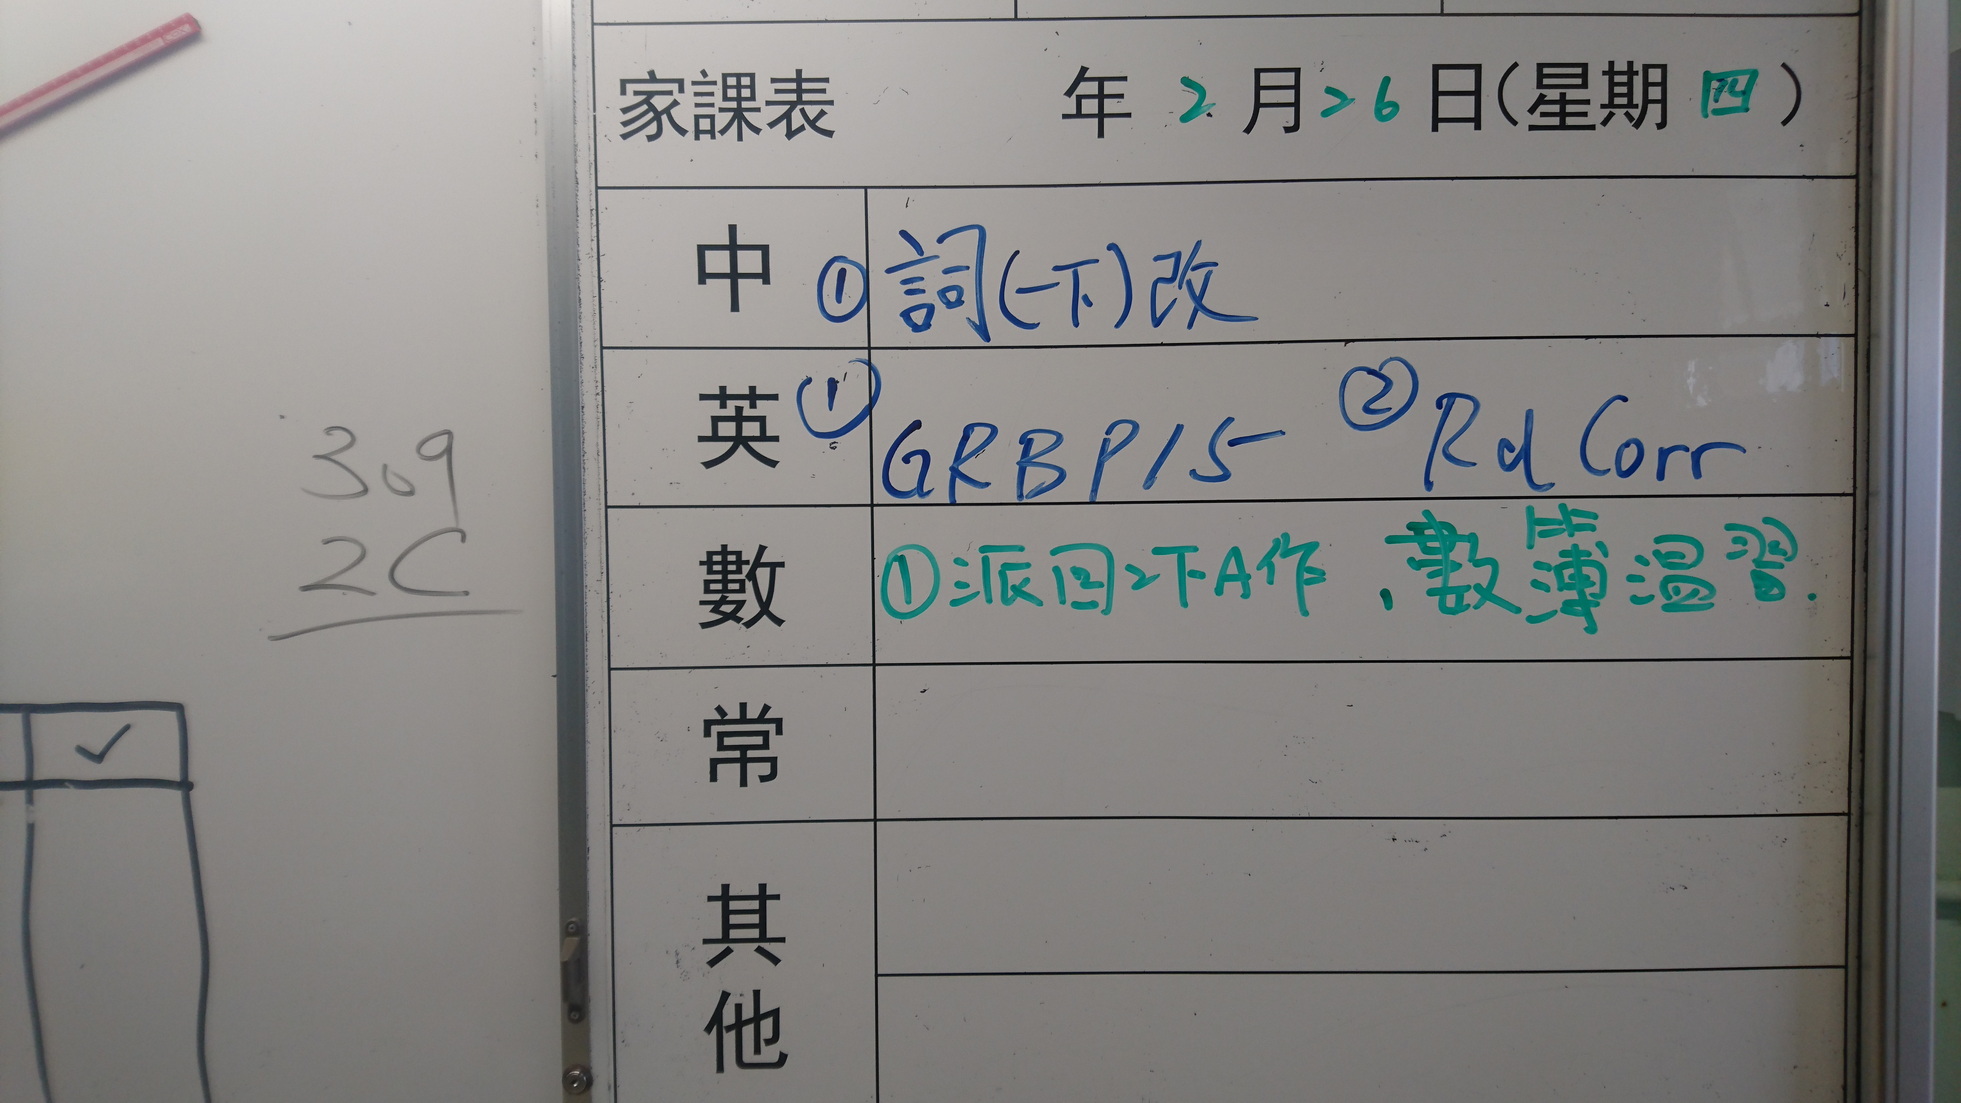 家課表 年 2 月 26 日(星期 四)
中 ① 詞(一下)改
英 ① GRB P15 ② Rd Corr
數 ① 派回2下A作、數簿溫習.
常
其他
309
2C